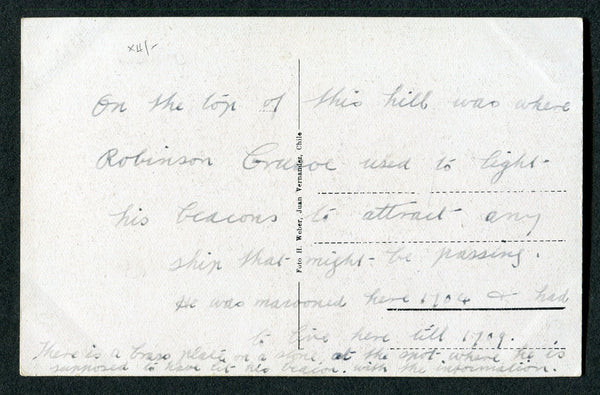 x4/-
On the top of this hill was where
Robinson Crusoe used to light
his beacons to attract any
ship that might be passing.
He was marooned here 1704 & had
to live here till 1709.
There is a brass plate on a stone, at the spot where he is
supposed to have lit his beacon. with the information.
Foto H. Weber, Juan Vernandez, Chile